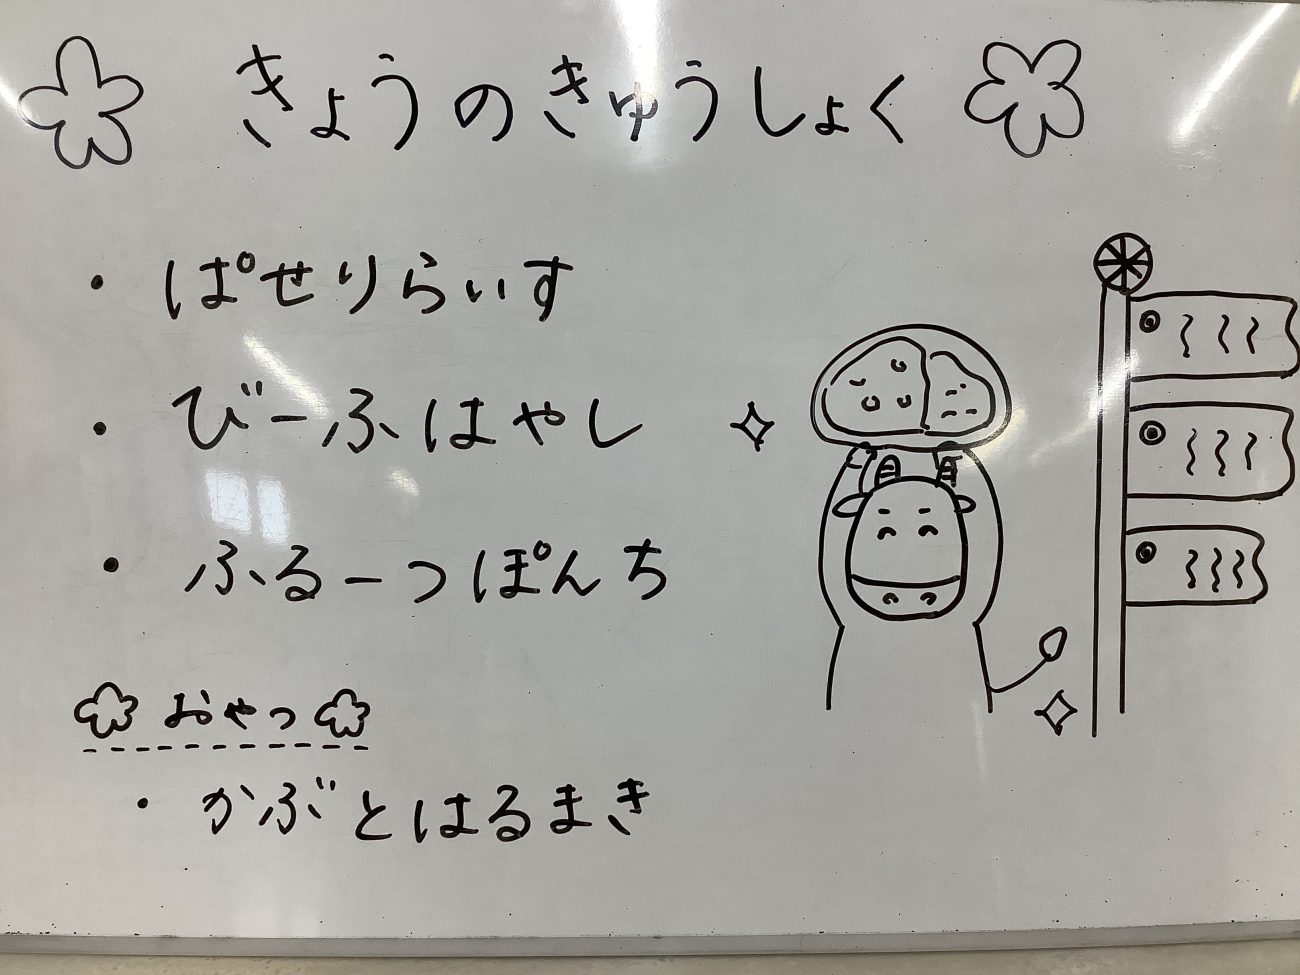 きょうのきゅうしょく
・ぱせりらいす
・びーふはやし
・ふるーつぽんち
おやつ
・かぶとはるまき